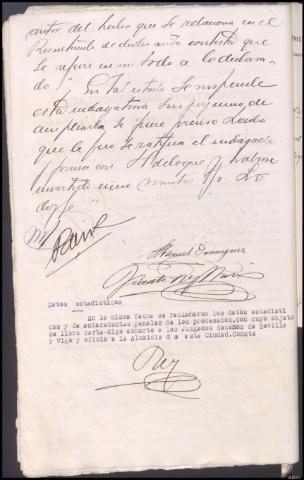 autos del hecho que se relaciona en el
Resultando de dicho auto contesta que
se refiere en un todo a lo declara-
do. En tal estado se suspende
esta indagatoria sin perjuicio de
ampliarla si fuere preciso. Leida
que le fue se ratifica el indagado
y firma con S. S. de lo que y haberse
invertido cinco minutos yo
doy fe
Manuel Dominguez
Vicente Rey
Datos estadísticos
En la misma fecha se reclamaron los datos estadisti
cos y de antecedentes penales de los procesados, con cuyo objeto
se libro carta-digo exhorto a los Juzgados decanos de Sevilla
y Vigo y oficio a la Alcaldia de esta Ciudad. Conste
Rey